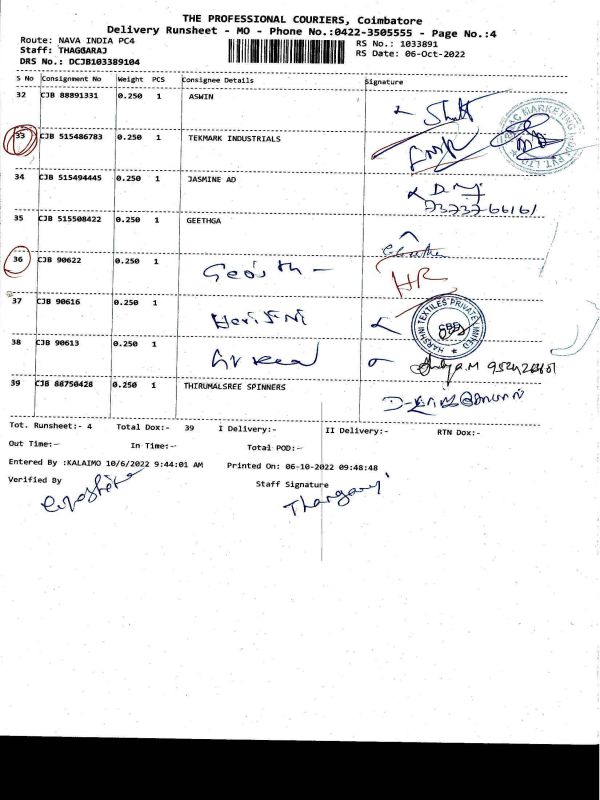 THE PROFESSIONAL COURIERS, Coimbatore
Delivery Runsheet - MO - Phone No.:0422-3505555 - Page No.:4
Route: NAVA INDIA PC4 RS No.: 1033891
Staff: THAGGARAJ RS Date: 06-Oct-2022
DRS No.: DCJB103389104
S No Consignment No Weight PCS Consignee Details Signature
32 CJB 88891331 0.250 1 ASWIN
33 CJB 515486783 0.250 1 TEKMARK INDUSTRIALS
34 CJB 515494445 0.250 1 JASMINE AD
35 CJB 515508422 0.250 1 GEETHGA
36 CJB 90622 0.250 1
HR
37 CJB 90616 0.250 1
HARSHNI TEXTILES PRIVATE LIMITED
38 CJB 90613 0.250 1
39 CJB 88750428 0.250 1 THIRUMALSREE SPINNERS
Tot. Runsheet:- 4 Total Dox:- 39 I Delivery:- II Delivery:- RTN Dox:-
Out Time:- In Time:- Total POD:-
Entered By :KALAIMO 10/6/2022 9:44:01 AM Printed On: 06-10-2022 09:48:48
Verified By Staff Signature